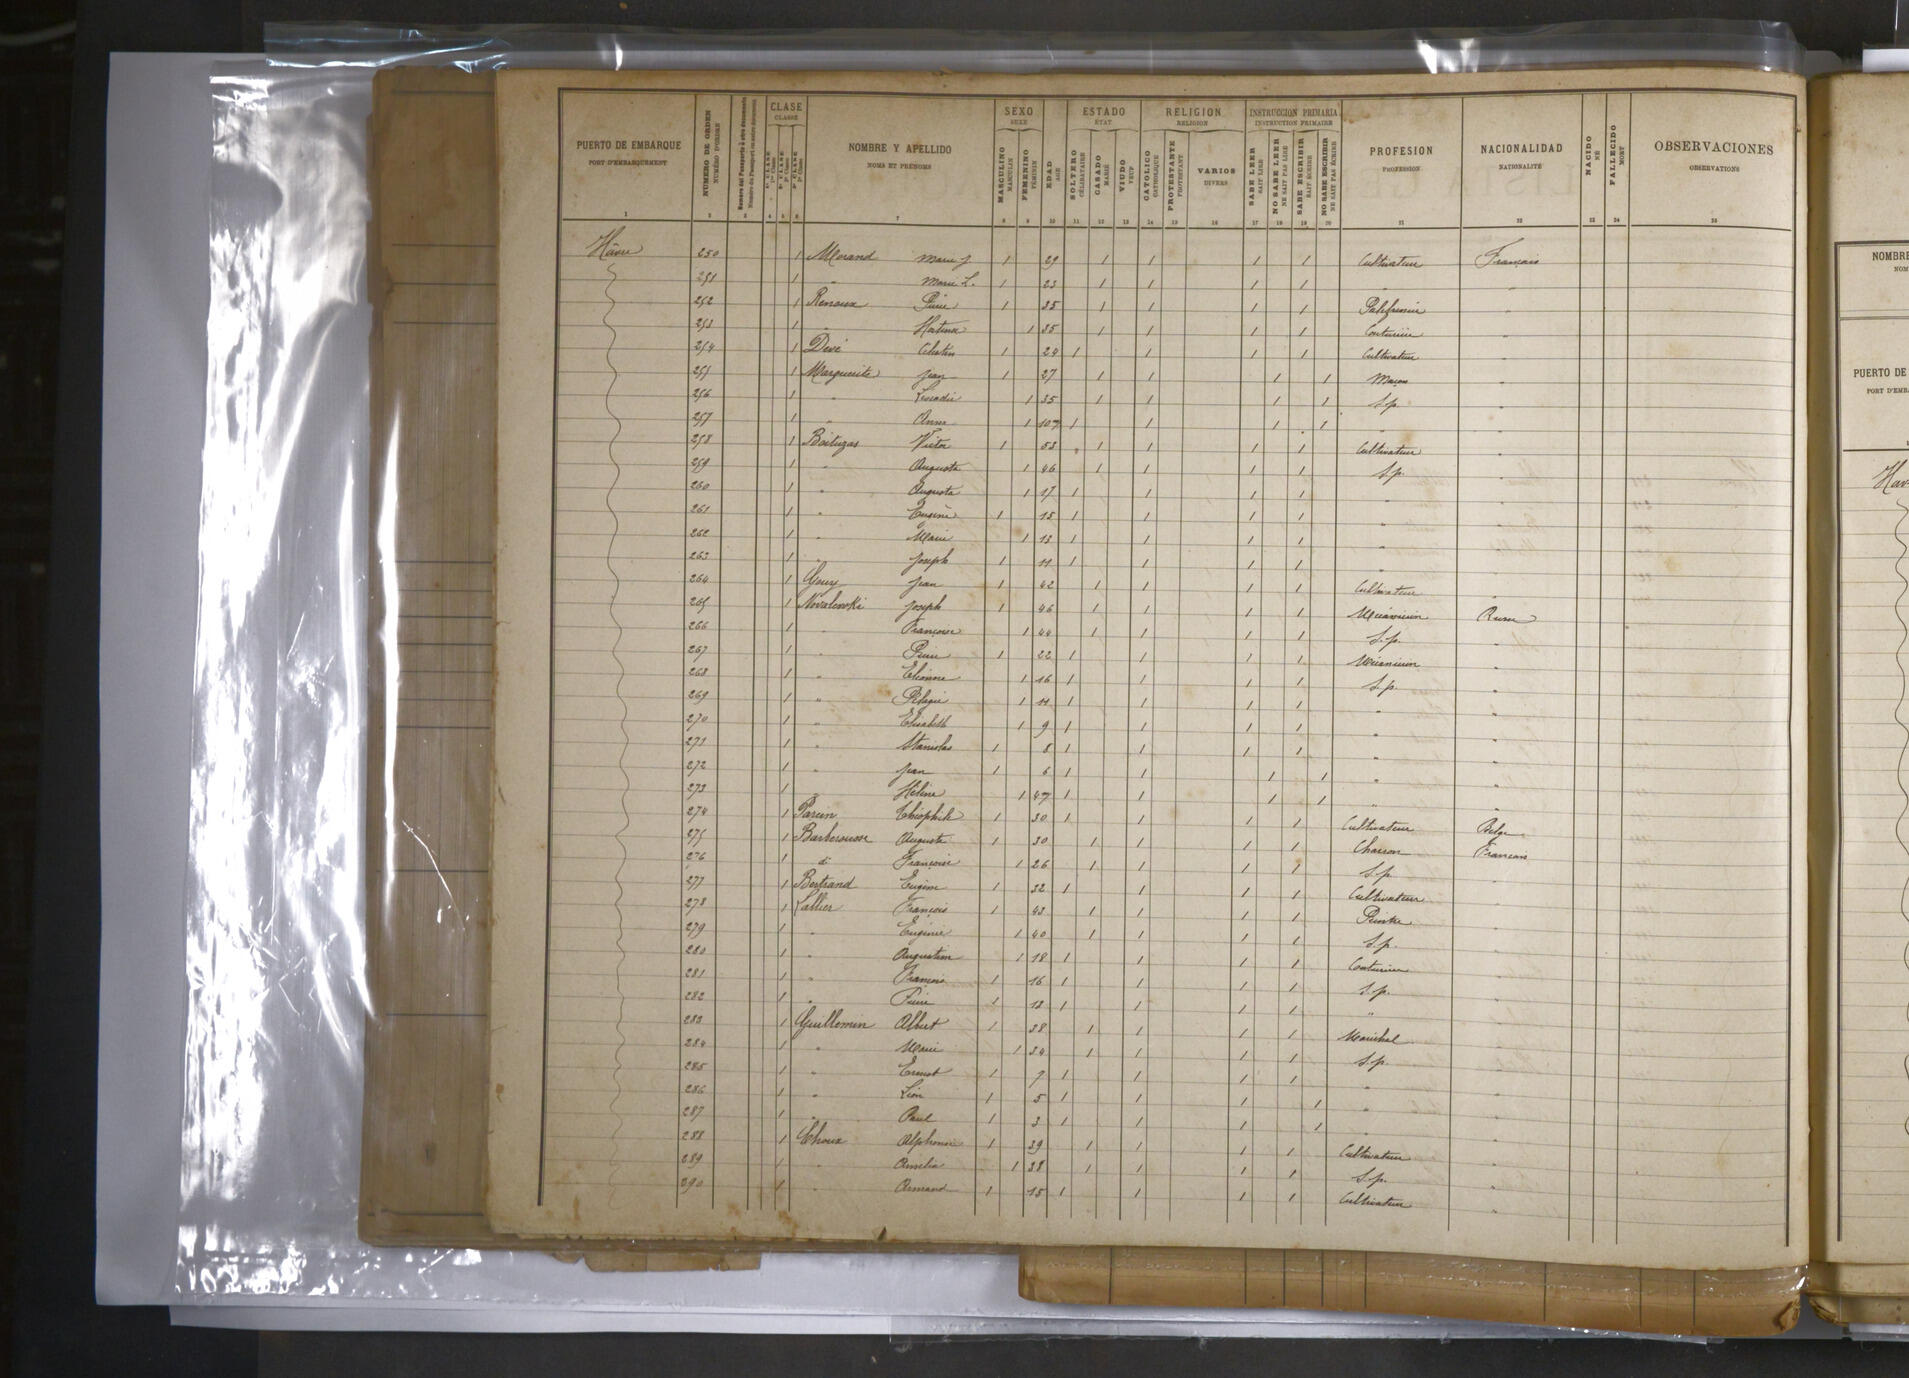 PUERTO DE EMBARQUE PORT D'EMBARQUEMENT 1
NUMERO DE ORDEN NUMÉRO D'ORDRE 2
Numero del Pasaporte ú otro documento Numéro du Passeport ou autre document 3
CLASE CLASSE
1ª CLASE 1re Classe 4
2ª CLASE 2e Classe 5
3ª CLASE 3e Classe 6
NOMBRE Y APELLIDO NOMS ET PRÉNOMS 7
SEXO SEXE
MASCULINO MASCULIN 8
FEMENINO FÉMININ 9
EDAD AGE 10
ESTADO ÉTAT
SOLTERO CÉLIBATAIRE 11
CASADO MARIÉ 12
VIUDO VEUF 13
RELIGION RELIGION
CATOLICO CATHOLIQUE 14
PROTESTANTE PROTESTANT 15
VARIOS DIVERS 16
INSTRUCCION PRIMARIA INSTRUCTION PRIMAIRE
SABE LEER SAIT LIRE 17
NO SABE LEER NE SAIT PAS LIRE 18
SABE ESCRIBIR SAIT ÉCRIRE 19
NO SABE ESCRIBIR NE SAIT PAS ÉCRIRE 20
PROFESION PROFESSION 21
NACIONALIDAD NATIONALITÉ 22
NACIDO NÉ 23
FALLECIDO MORT 24
OBSERVACIONES OBSERVATIONS 25
Hâvre 250 1 Morand Marie J. 1 29 1 1 1 1 Cultivateur Français
251 1 " Marie L. 1 23 1 1 1 1 " "
252 1 Renoux Pierre 1 35 1 1 1 1 Palefrenier "
253 1 " Hortense 1 35 1 1 1 1 Couturière "
254 1 Devé Célestin 1 24 1 1 1 1 Cultivateur "
255 1 Marguerite Jean 1 27 1 1 1 1 Maçon "
256 1 " Léocadie 1 35 1 1 1 1 S.p. "
257 1 " Anne 1 107 1 1 1 1 " "
258 1 Victor 1 53 1 1 1 1 Cultivateur "
259 1 " Augusta 1 46 1 1 1 1 S.p. "
260 1 " Augusta 1 17 1 1 1 1 " "
261 1 " Eugène 1 15 1 1 1 1 " "
262 1 " Marie 1 13 1 1 1 1 " "
263 1 " Joseph 1 11 1 1 1 1 " "
264 1 Jean 1 42 1 1 1 1 Cultivateur "
265 1 Novalewski Joseph 1 46 1 1 1 1 Mécanicien Russe
266 1 " Françoise 1 44 1 1 1 1 S.p. "
267 1 " Pierre 1 22 1 1 1 1 Mécanicien "
268 1 " 1 16 1 1 1 1 S.p. "
269 1 " Pélagie 1 11 1 1 1 1 " "
270 1 " Elisabeth 1 9 1 1 1 1 " "
271 1 " Stanislas 1 8 1 1 1 1 " "
272 1 " Jean 1 6 1 1 1 1 " "
273 1 " Hélène 1 47 1 1 1 1 " "
274 1 Parein Théophile 1 30 1 1 1 1 Cultivateur Belge
275 1 Barberousse Auguste 1 30 1 1 1 1 Charron Français
276 1 d° Françoise 1 26 1 1 1 1 S.p. "
277 1 Bertrand Eugène 1 32 1 1 1 1 Cultivateur "
278 1 Lallier François 1 43 1 1 1 1 Peintre "
279 1 " Eugénie 1 40 1 1 1 1 S.p. "
280 1 " Augustine 1 18 1 1 1 1 Couturière "
281 1 " François 1 16 1 1 1 1 S.p. "
282 1 " Pierre 1 12 1 1 1 1 " "
283 1 Guillemin Albert 1 38 1 1 1 1 Maréchal "
284 1 " Marie 1 34 1 1 1 1 S.p. "
285 1 " Ernest 1 7 1 1 1 1 " "
286 1 " Léon 1 5 1 1 1 1 " "
287 1 " Paul 1 3 1 1 1 1 " "
288 1 Choux Alphonse 1 39 1 1 1 1 Cultivateur "
289 1 " Amélie 1 38 1 1 1 1 S.p. "
290 1 " Armand 1 15 1 1 1 1 Cultivateur "
NOMBRE
NOM
PUERTO DE
PORT D'EMB
Hav